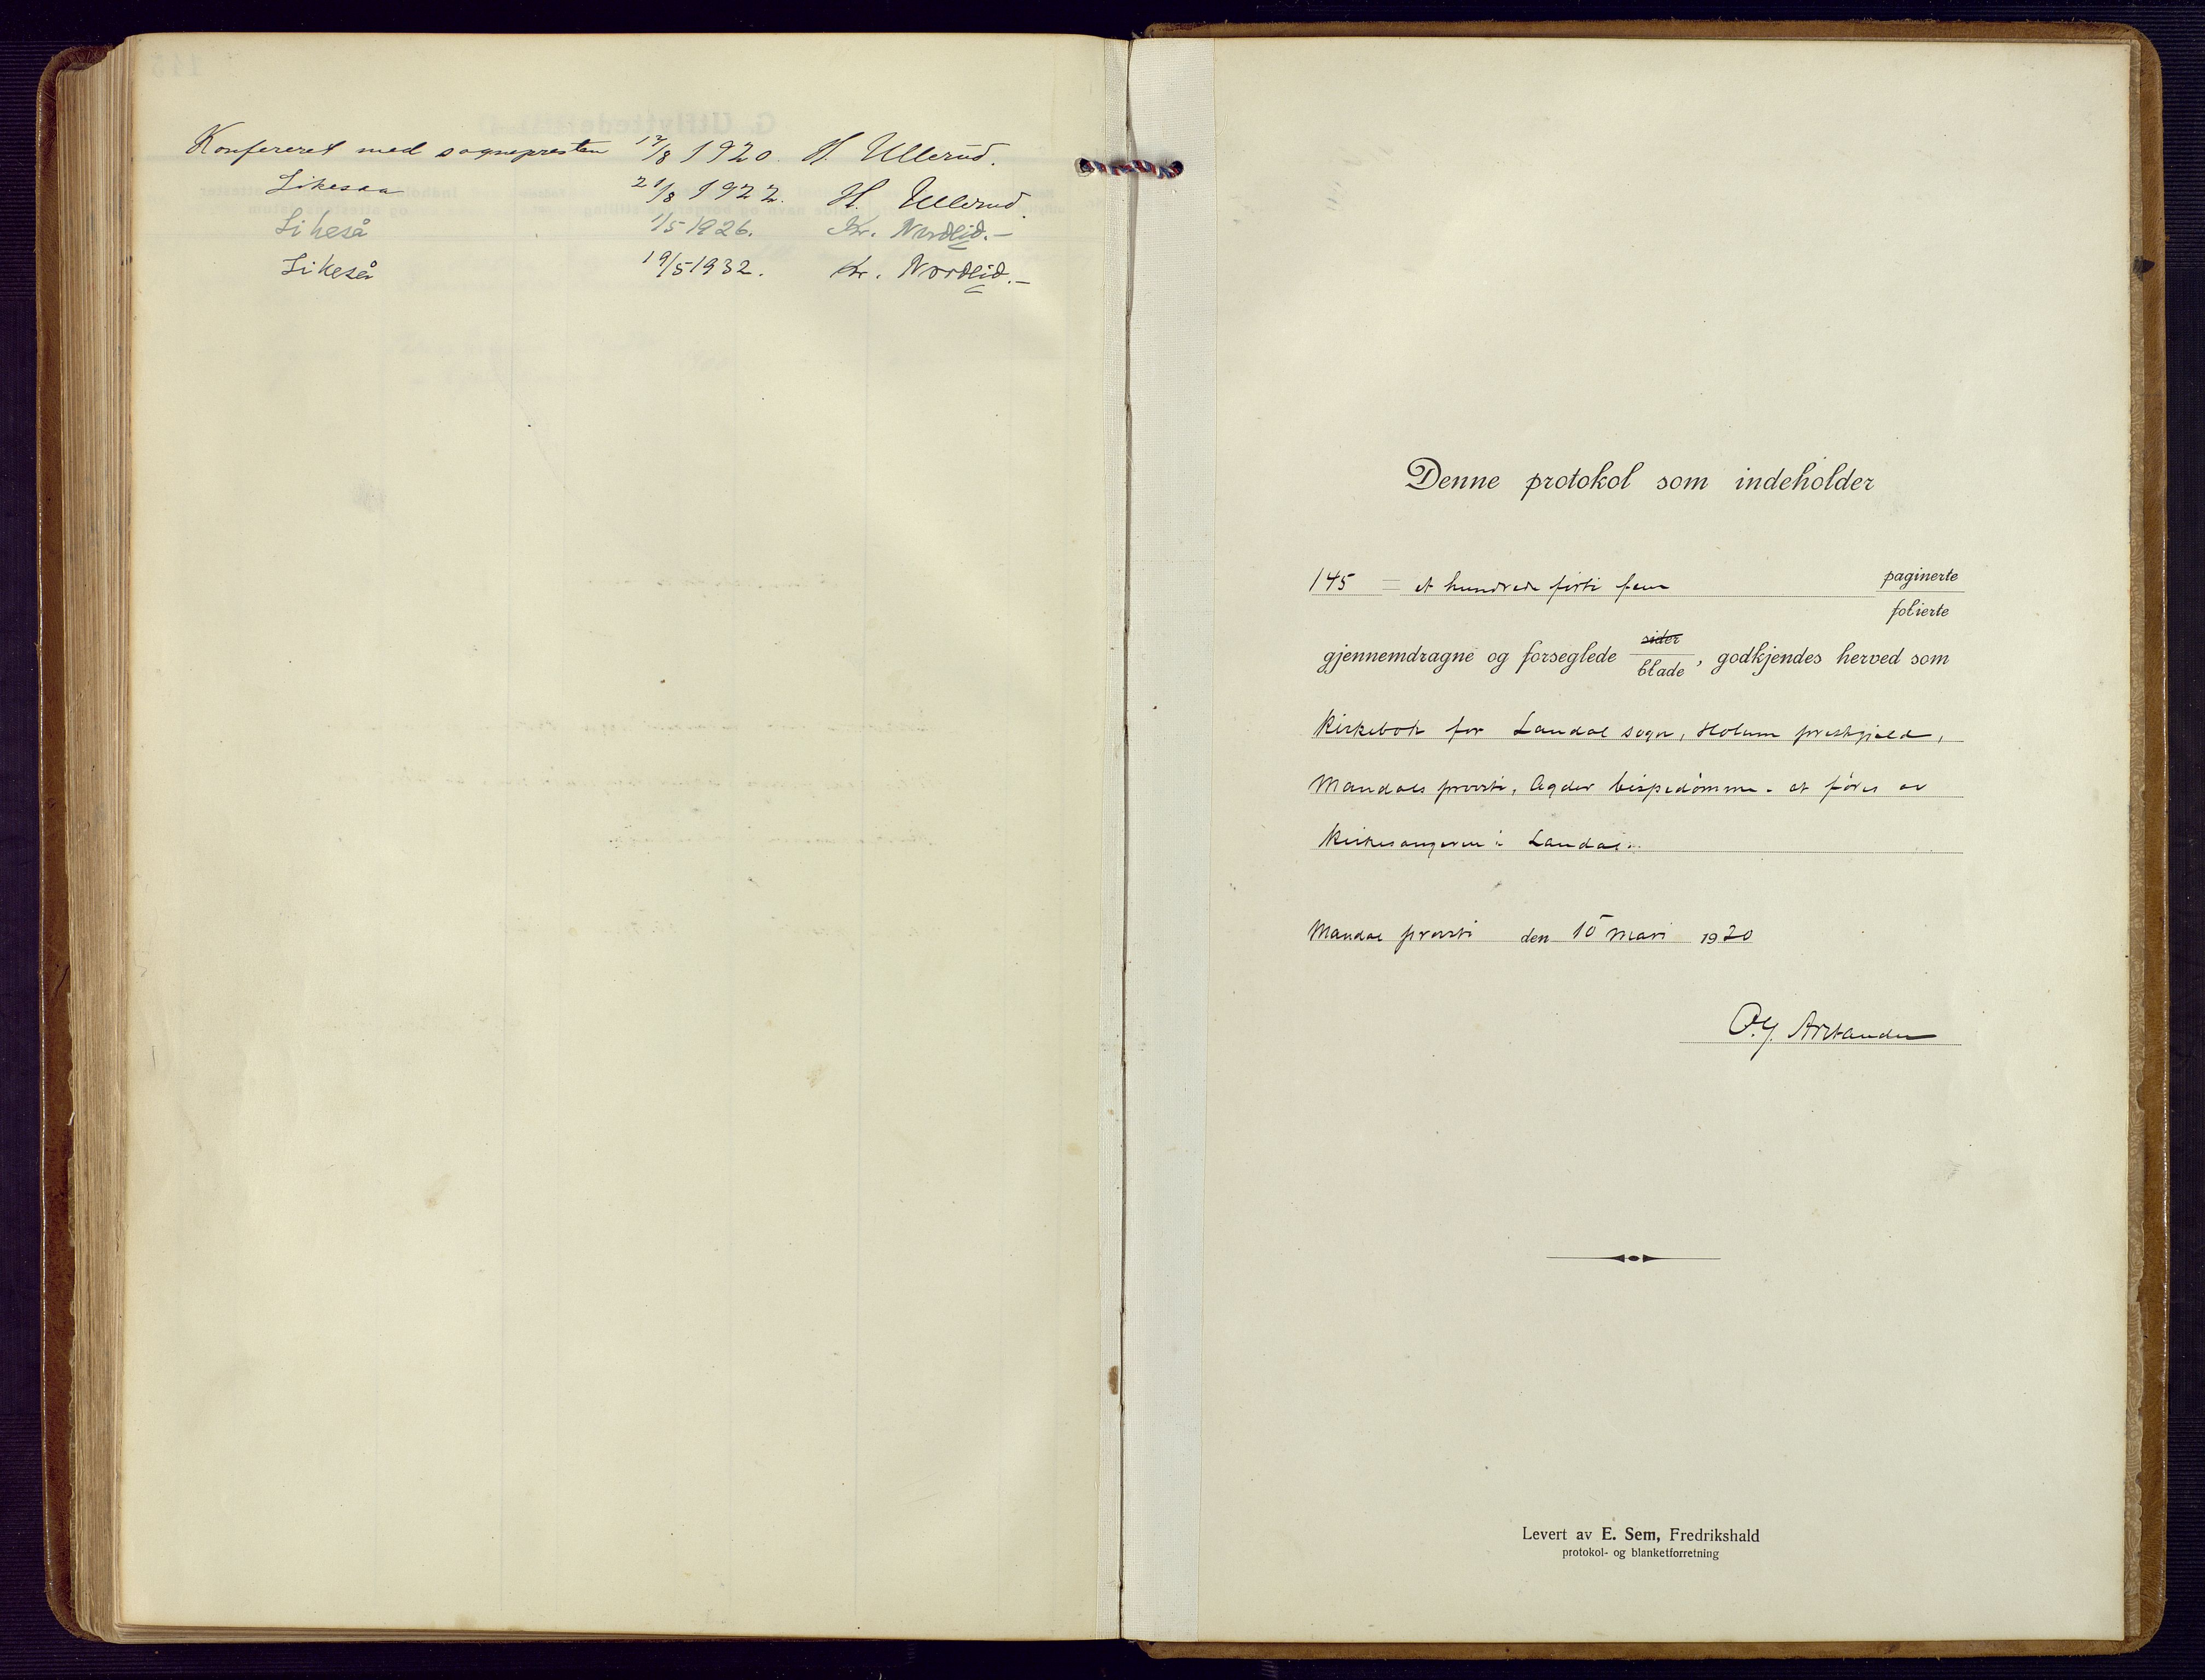 Konfereret med sognepresten 12/8 1920. H. Ullerud.
Likesaa 21/8 1922. H. Ullerud.
Likeså 1/5 1926. Kr. Nordlid.-
Likeså 19/5 1932. Kr. Nordlid.-
Denne protokol som indeholder
145 = et hundrede firti fem paginerte
folierte
sider
gjennemdragne og forseglede blade, godkjendes herved som
Kirkebok for Laudal sogn, Holum prestegjeld,
Mandals prosti, Agder bispedømme - at føres av
kirkesangeren i Laudal.
Mandal prosti den 15 mars 1920
Levert av E. Sem, Fredrikshald
protokol- og blanketforretning